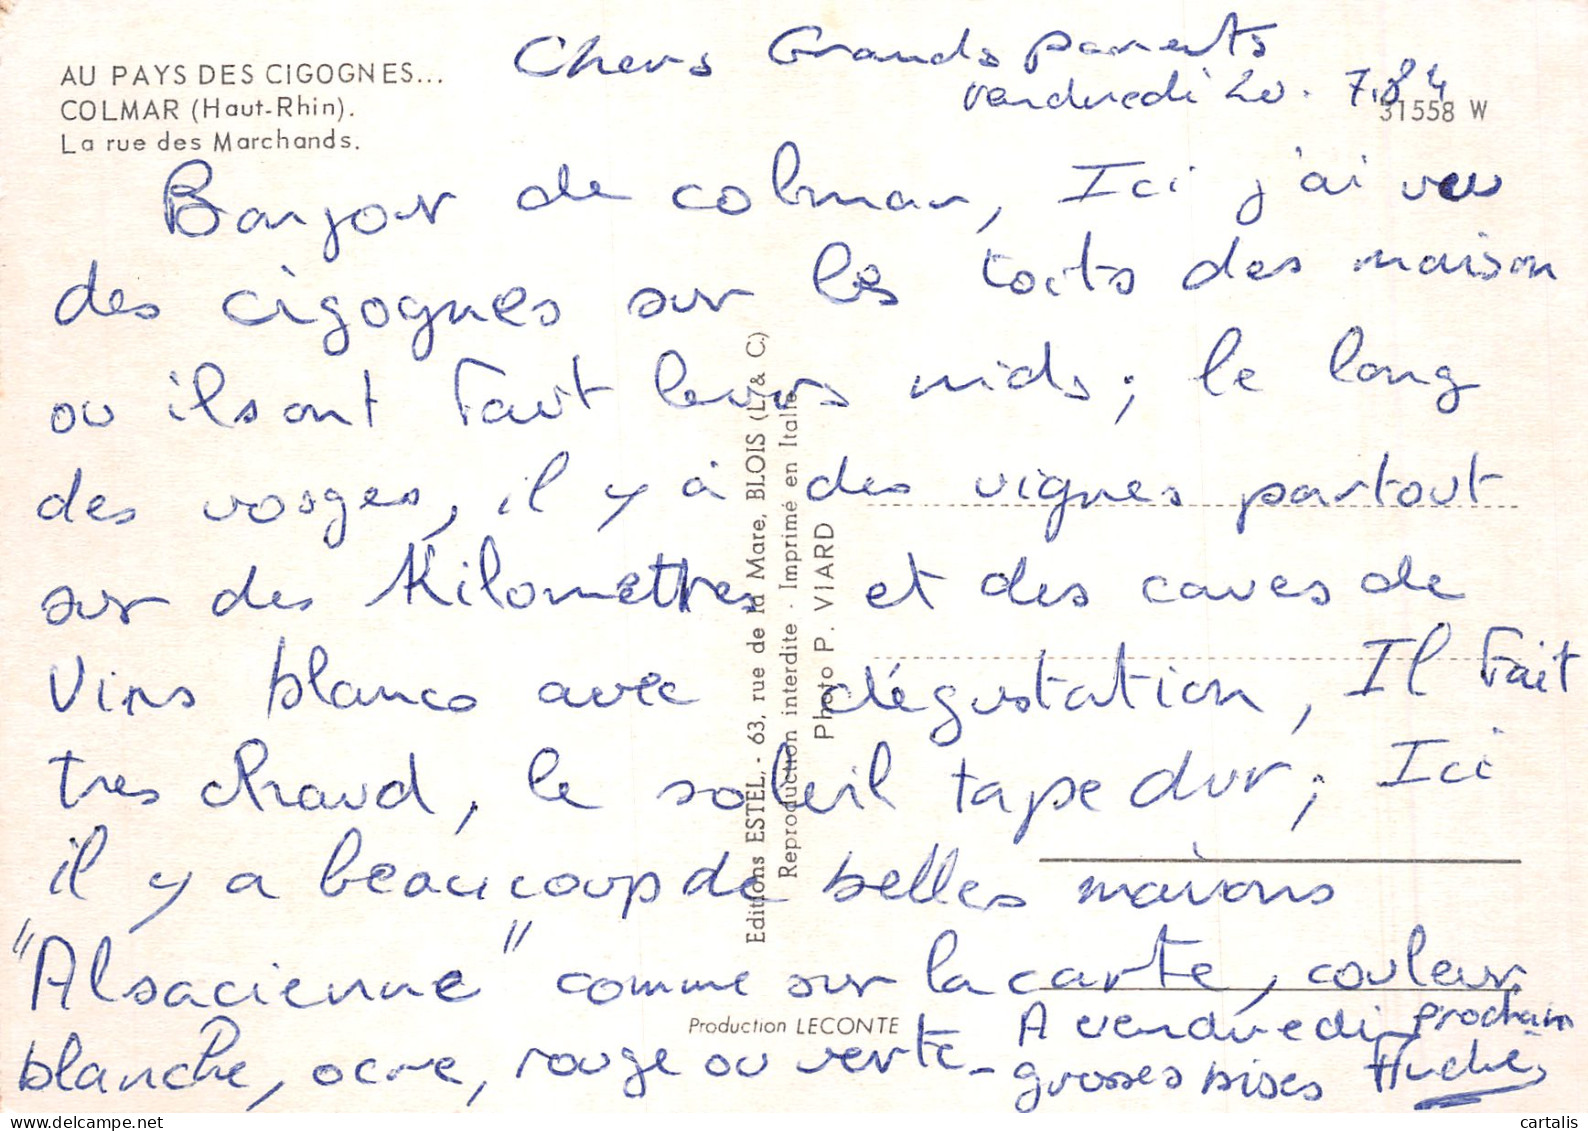 AU PAYS DES CIGOGNES...
COLMAR (Haut-Rhin).
La rue des Marchands.
31558 W
Chers Grands parents
vendredi 20. 7.84
Bonjour de colmar, Ici j'ai vu
des cigognes sur les toits des maison
ou ils ont fait leurs nids; le long
des vosges, il y à des vignes partout
sur des Kilomettres et des caves de
Vins blancs avec dégustation, Il fait
tres chaud, le soleil tape dur; Ici
il y a beaucoup de belles maisons
"Alsacienne" comme sur la carte, couleur
blanche, ocre, rouge ou verte -
A vendredi prochain
grosses bises
Editions ESTEL, - 63, rue de la Mare, BLOIS (L. & C.)
Reproduction interdite - Imprimé en Italie
Photo P. VIARD
Production LECONTE
cartalis